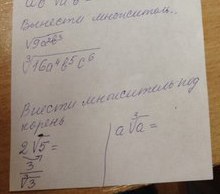 Вынести множитель.
√9a²b³
∛16a⁴b⁵c⁶
Внести множитель под
корень
2√5 =
a∛a =
3/√3